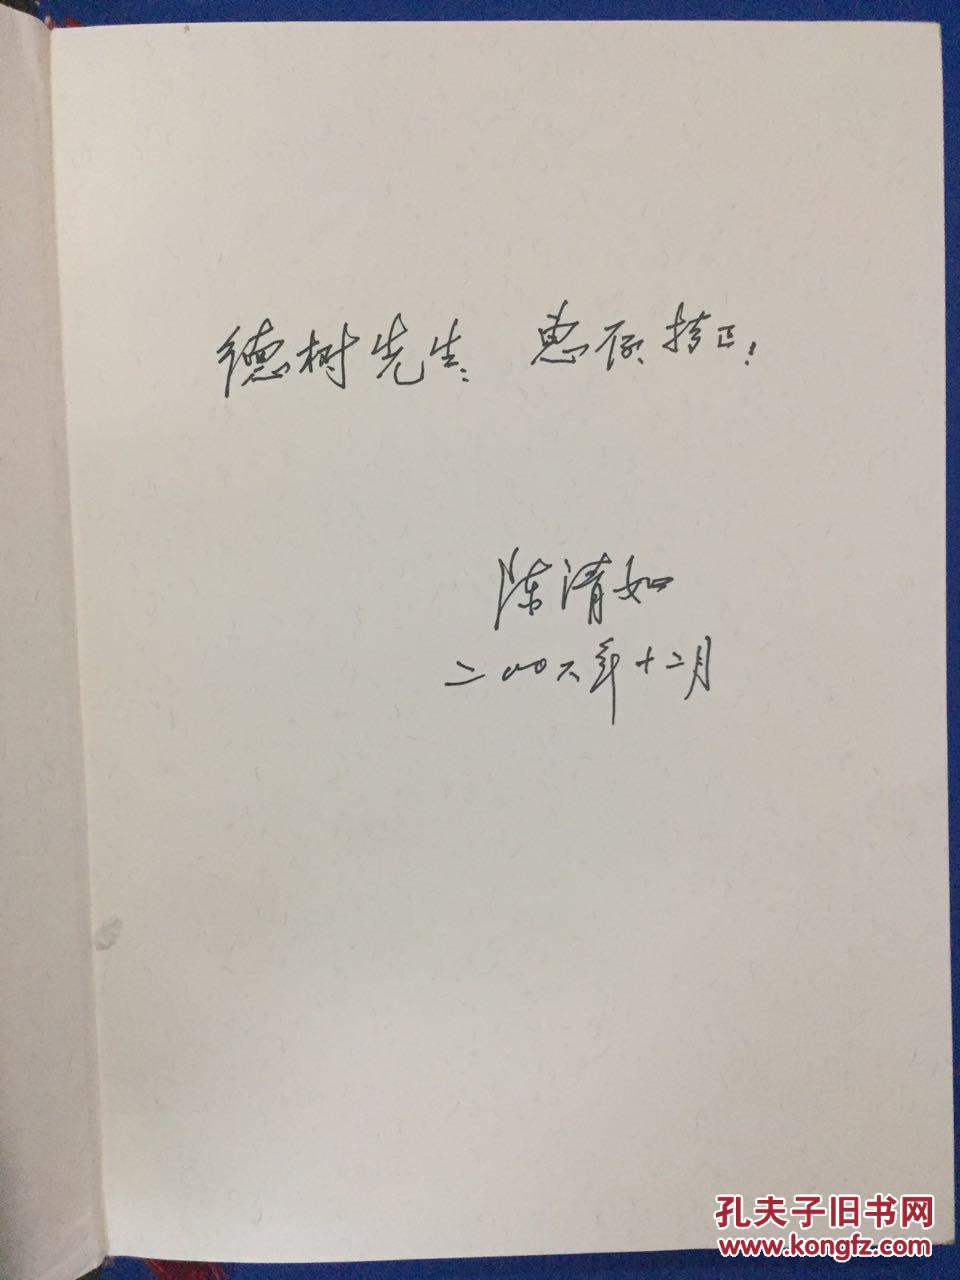 德树先生: 惠存指正!
陈清如
二〇〇六年十二月
孔夫子旧书网
www.kongfz.com